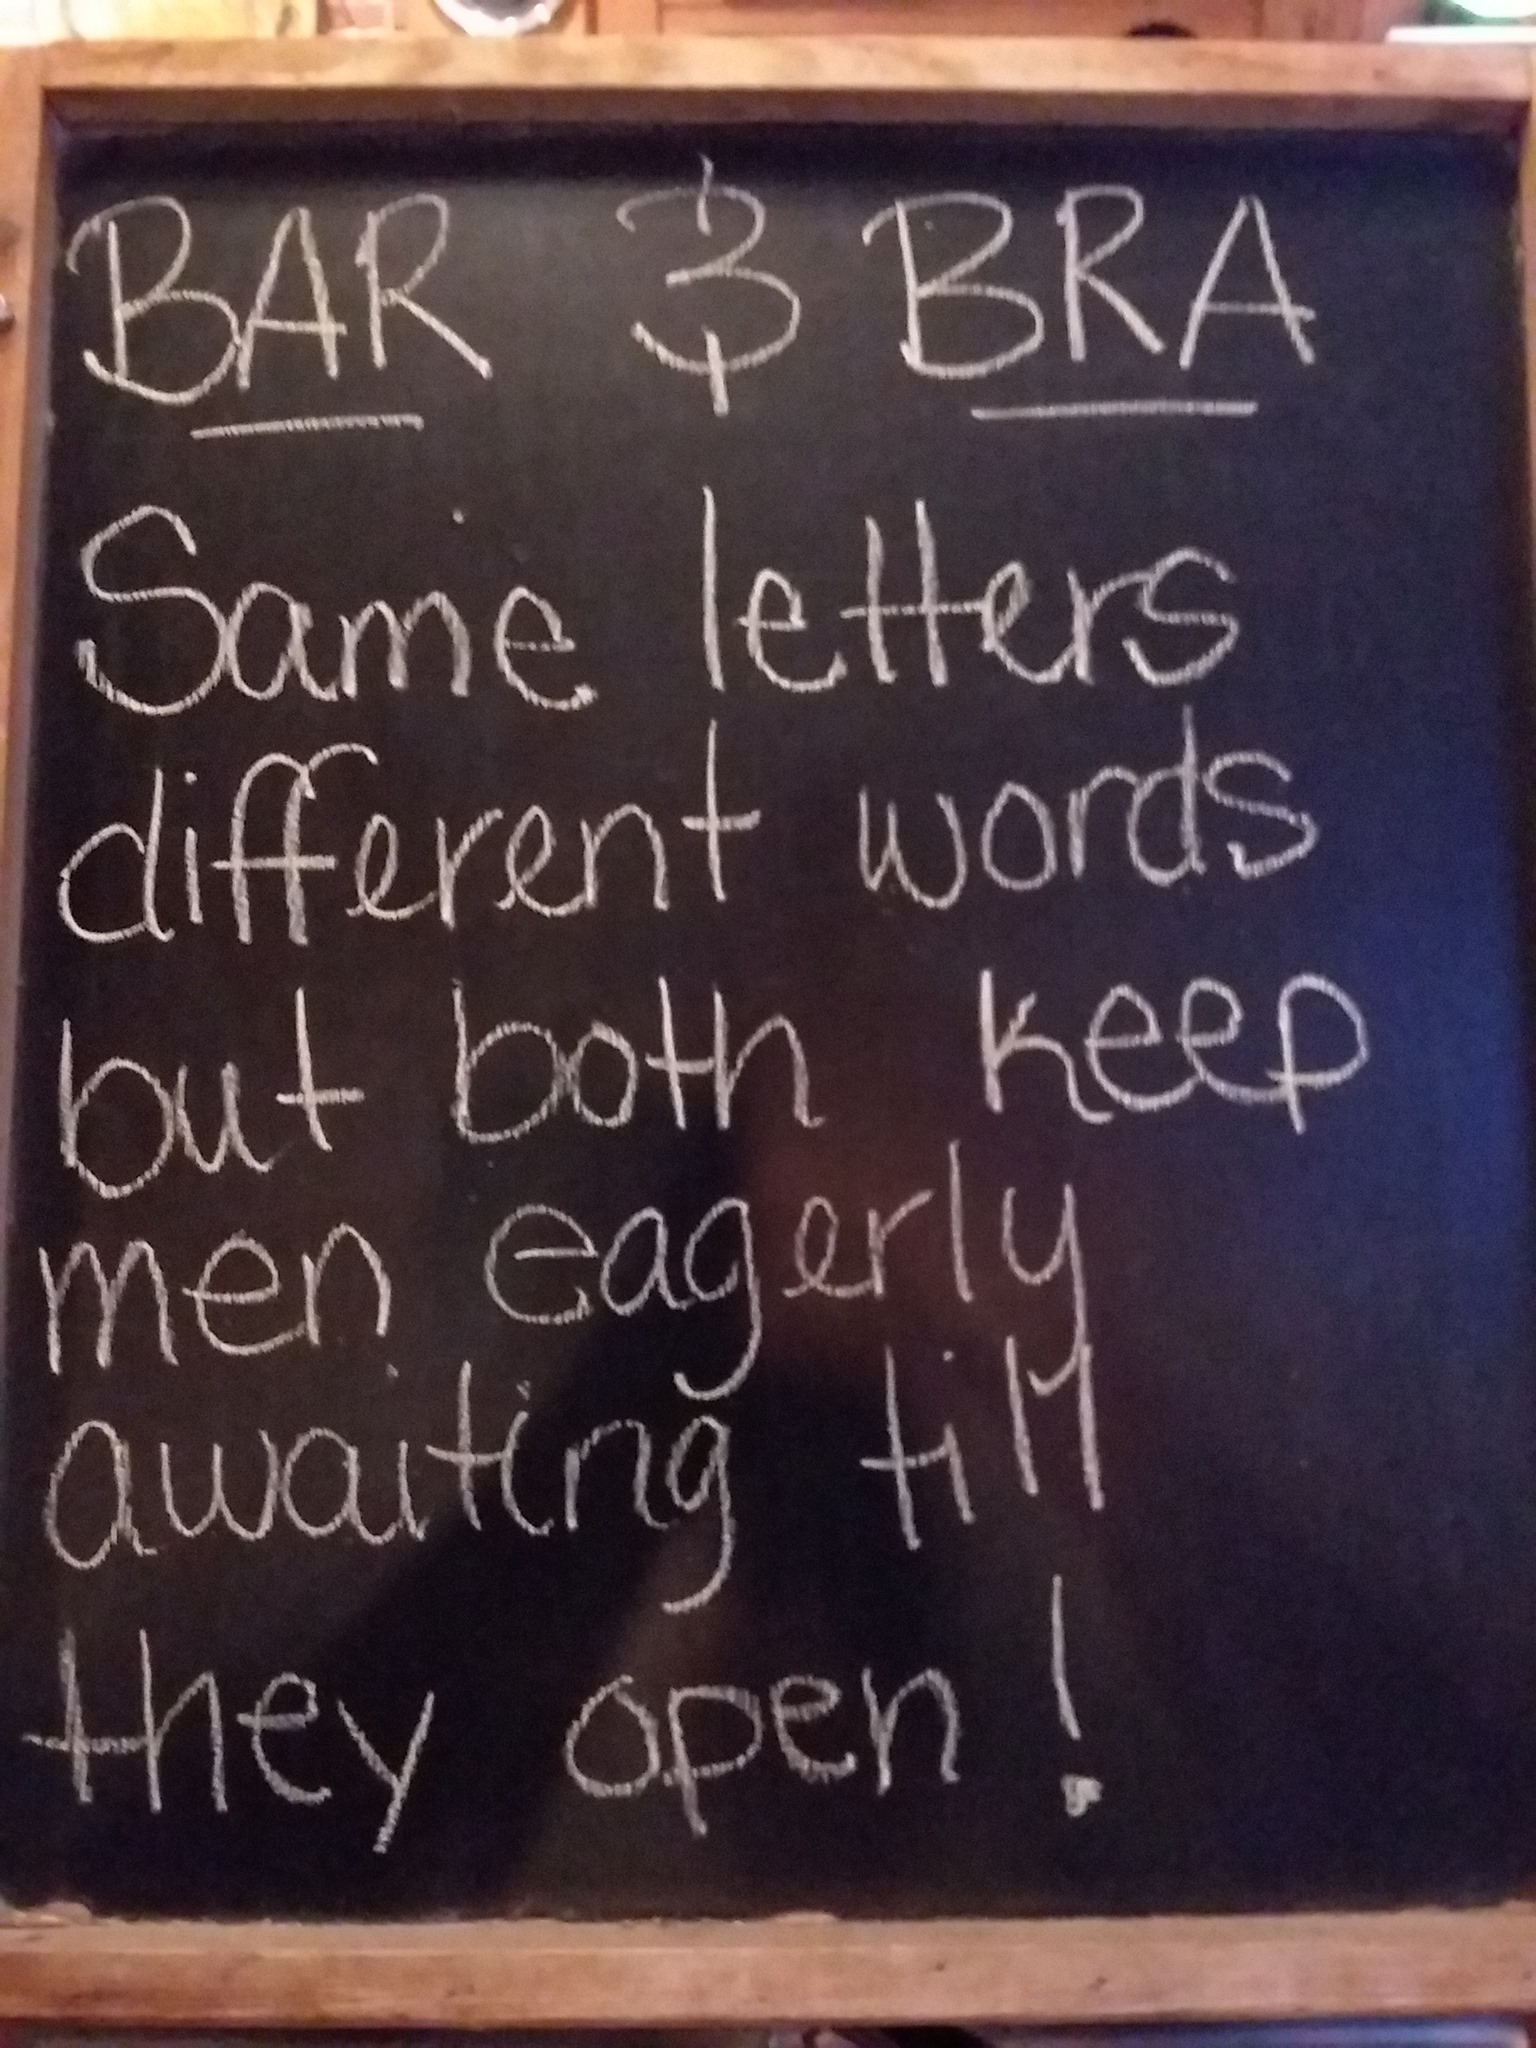 BAR & BRA
Same letters
different words
but both keep
men eagerly
awaiting till
they open!